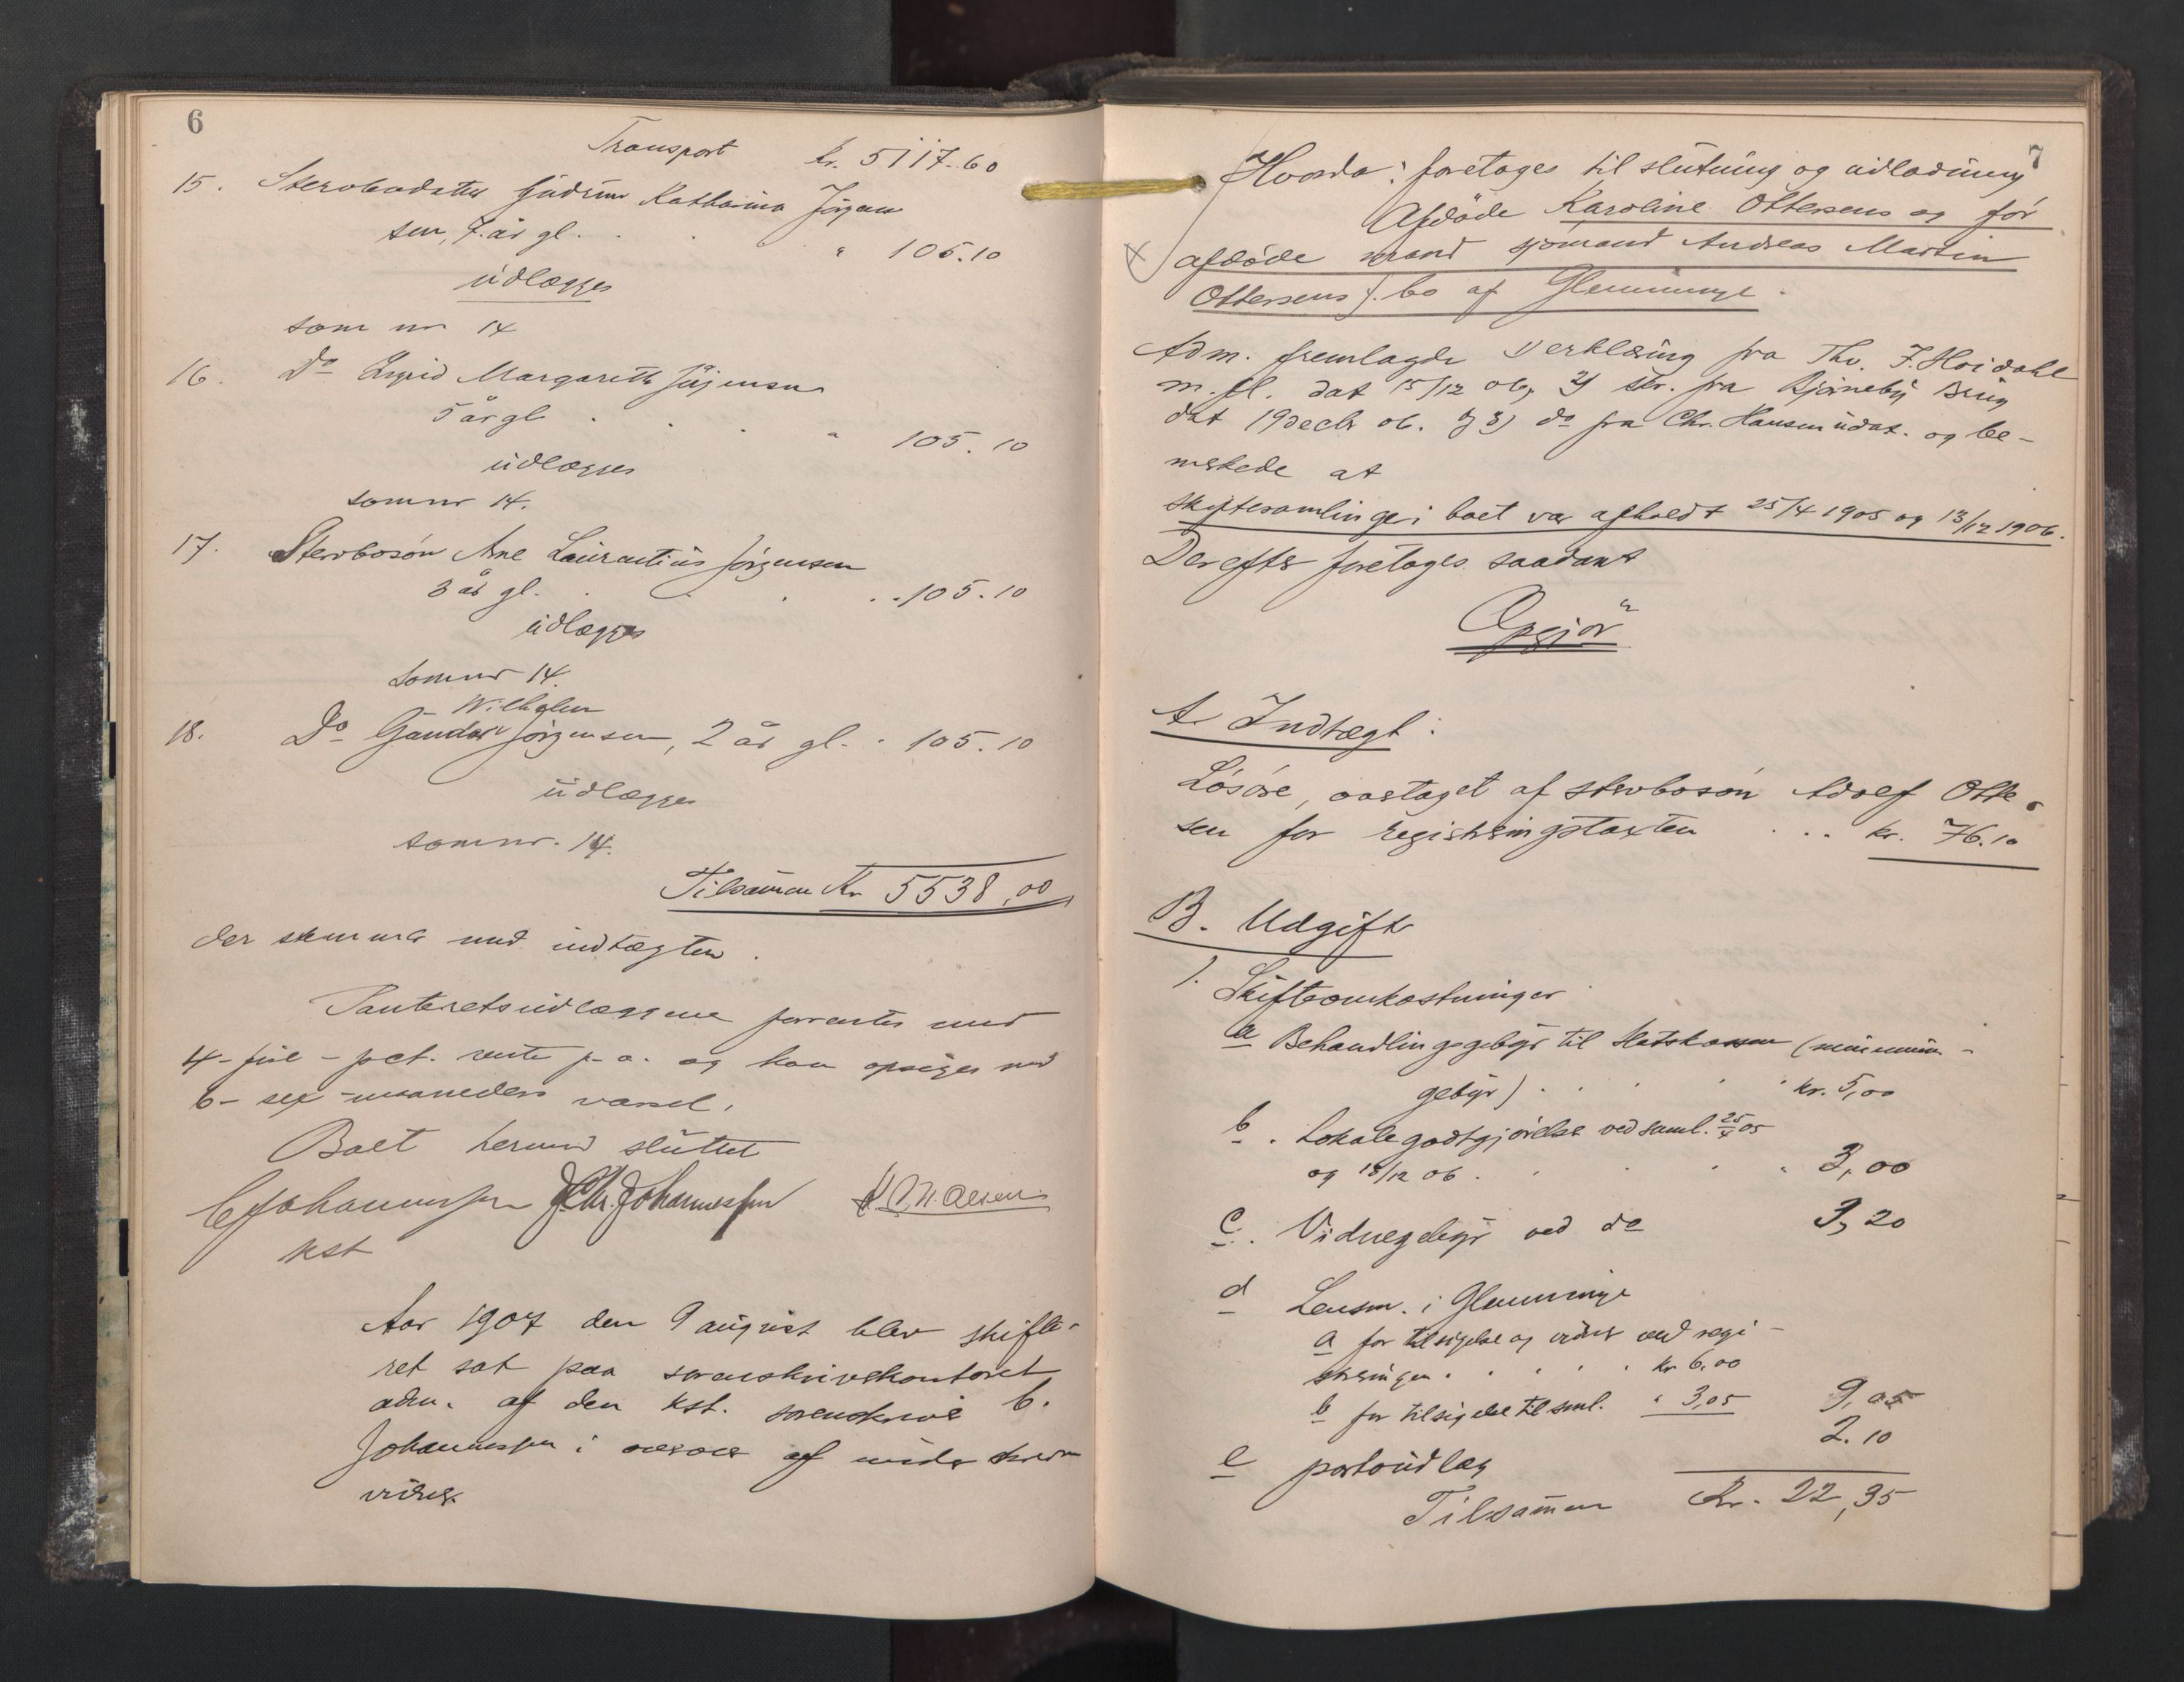 6
Transport kr. 5117.60
15. Stervbodatter Gudrun Katharina Jörgen
sen, 7 år gl. . . " 105.10
udlægges
som nr 14
16. Do Ingrid Margarethe Jörgensen
5 år gl . . . " 105.10
udlægges
som nr 14.
17. Stervbosön Arne Laurantius Jörgensen
3 år gl. . . . . " 105.10
udlægges
som nr 14.
Wilhelm
18. Do Gundar Jörgensen, 2 år gl. " 105.10
udlægges
som nr. 14.
Tilsammen Kr 5538,00
der stemmer med indtægten.
Panteretsudlæggene forrentes med
4 - fire - pct. rente p. a. og kan opsiges med
6 - sex - maaneders varsel.
Boet herved sluttet
C Johannessen J. Chr. Johannessen N. Olsen
kst
Aar 1907 den 9 august blev skifte-
ret sat paa sorenskriverkontoret
adm. af den kst. sorenskriver C.
Johannessen i overvær af undertegnede
vidner.
7
Hvorda: foretages til slutning og udlodning
Afdöde Karoline Ottersens og før
afdöde mand sjömand Andreas Martin
Ottersens f. bo af Glemminge.
Adm. fremlagde 1) erklæring fra Thv. J. Hoidahl
m. fl. dat 15/12 06, 2) skr. fra Bjørneby Brug
dat 19 decbr 06. og 3) do fra Chr. Hansen udat. og be-
merkede at
skiftesamlinger i boet var afholdt 25/4 1905 og 13/12 1906.
Derefter foretages saadant
Opgjör
A. Indtægt:
Lösöre, overtaget af stervbosön Adolf Otter
sen for registreringstaxten . . . kr. 76.10
B. Udgift
1. Skifteomkostninger
a Behandlingsgebyr til Statskassen (minimum-
gebyr) . . . . . kr. 5,00
b. Lokalegodtgjörelse ved saml. 25/4 05
og 13/12 06 . . . . " 3,00
c. Vidnegebyr ved do 3,20
d Lensm. i Glemminge
a for tilsigelse og vidner ved regi-
streringen . . . . . kr 6.00
b for tilsigelse til saml. " 3,05 9,05
e portoudlæg 2.10
Tilsammen Kr. 22,35